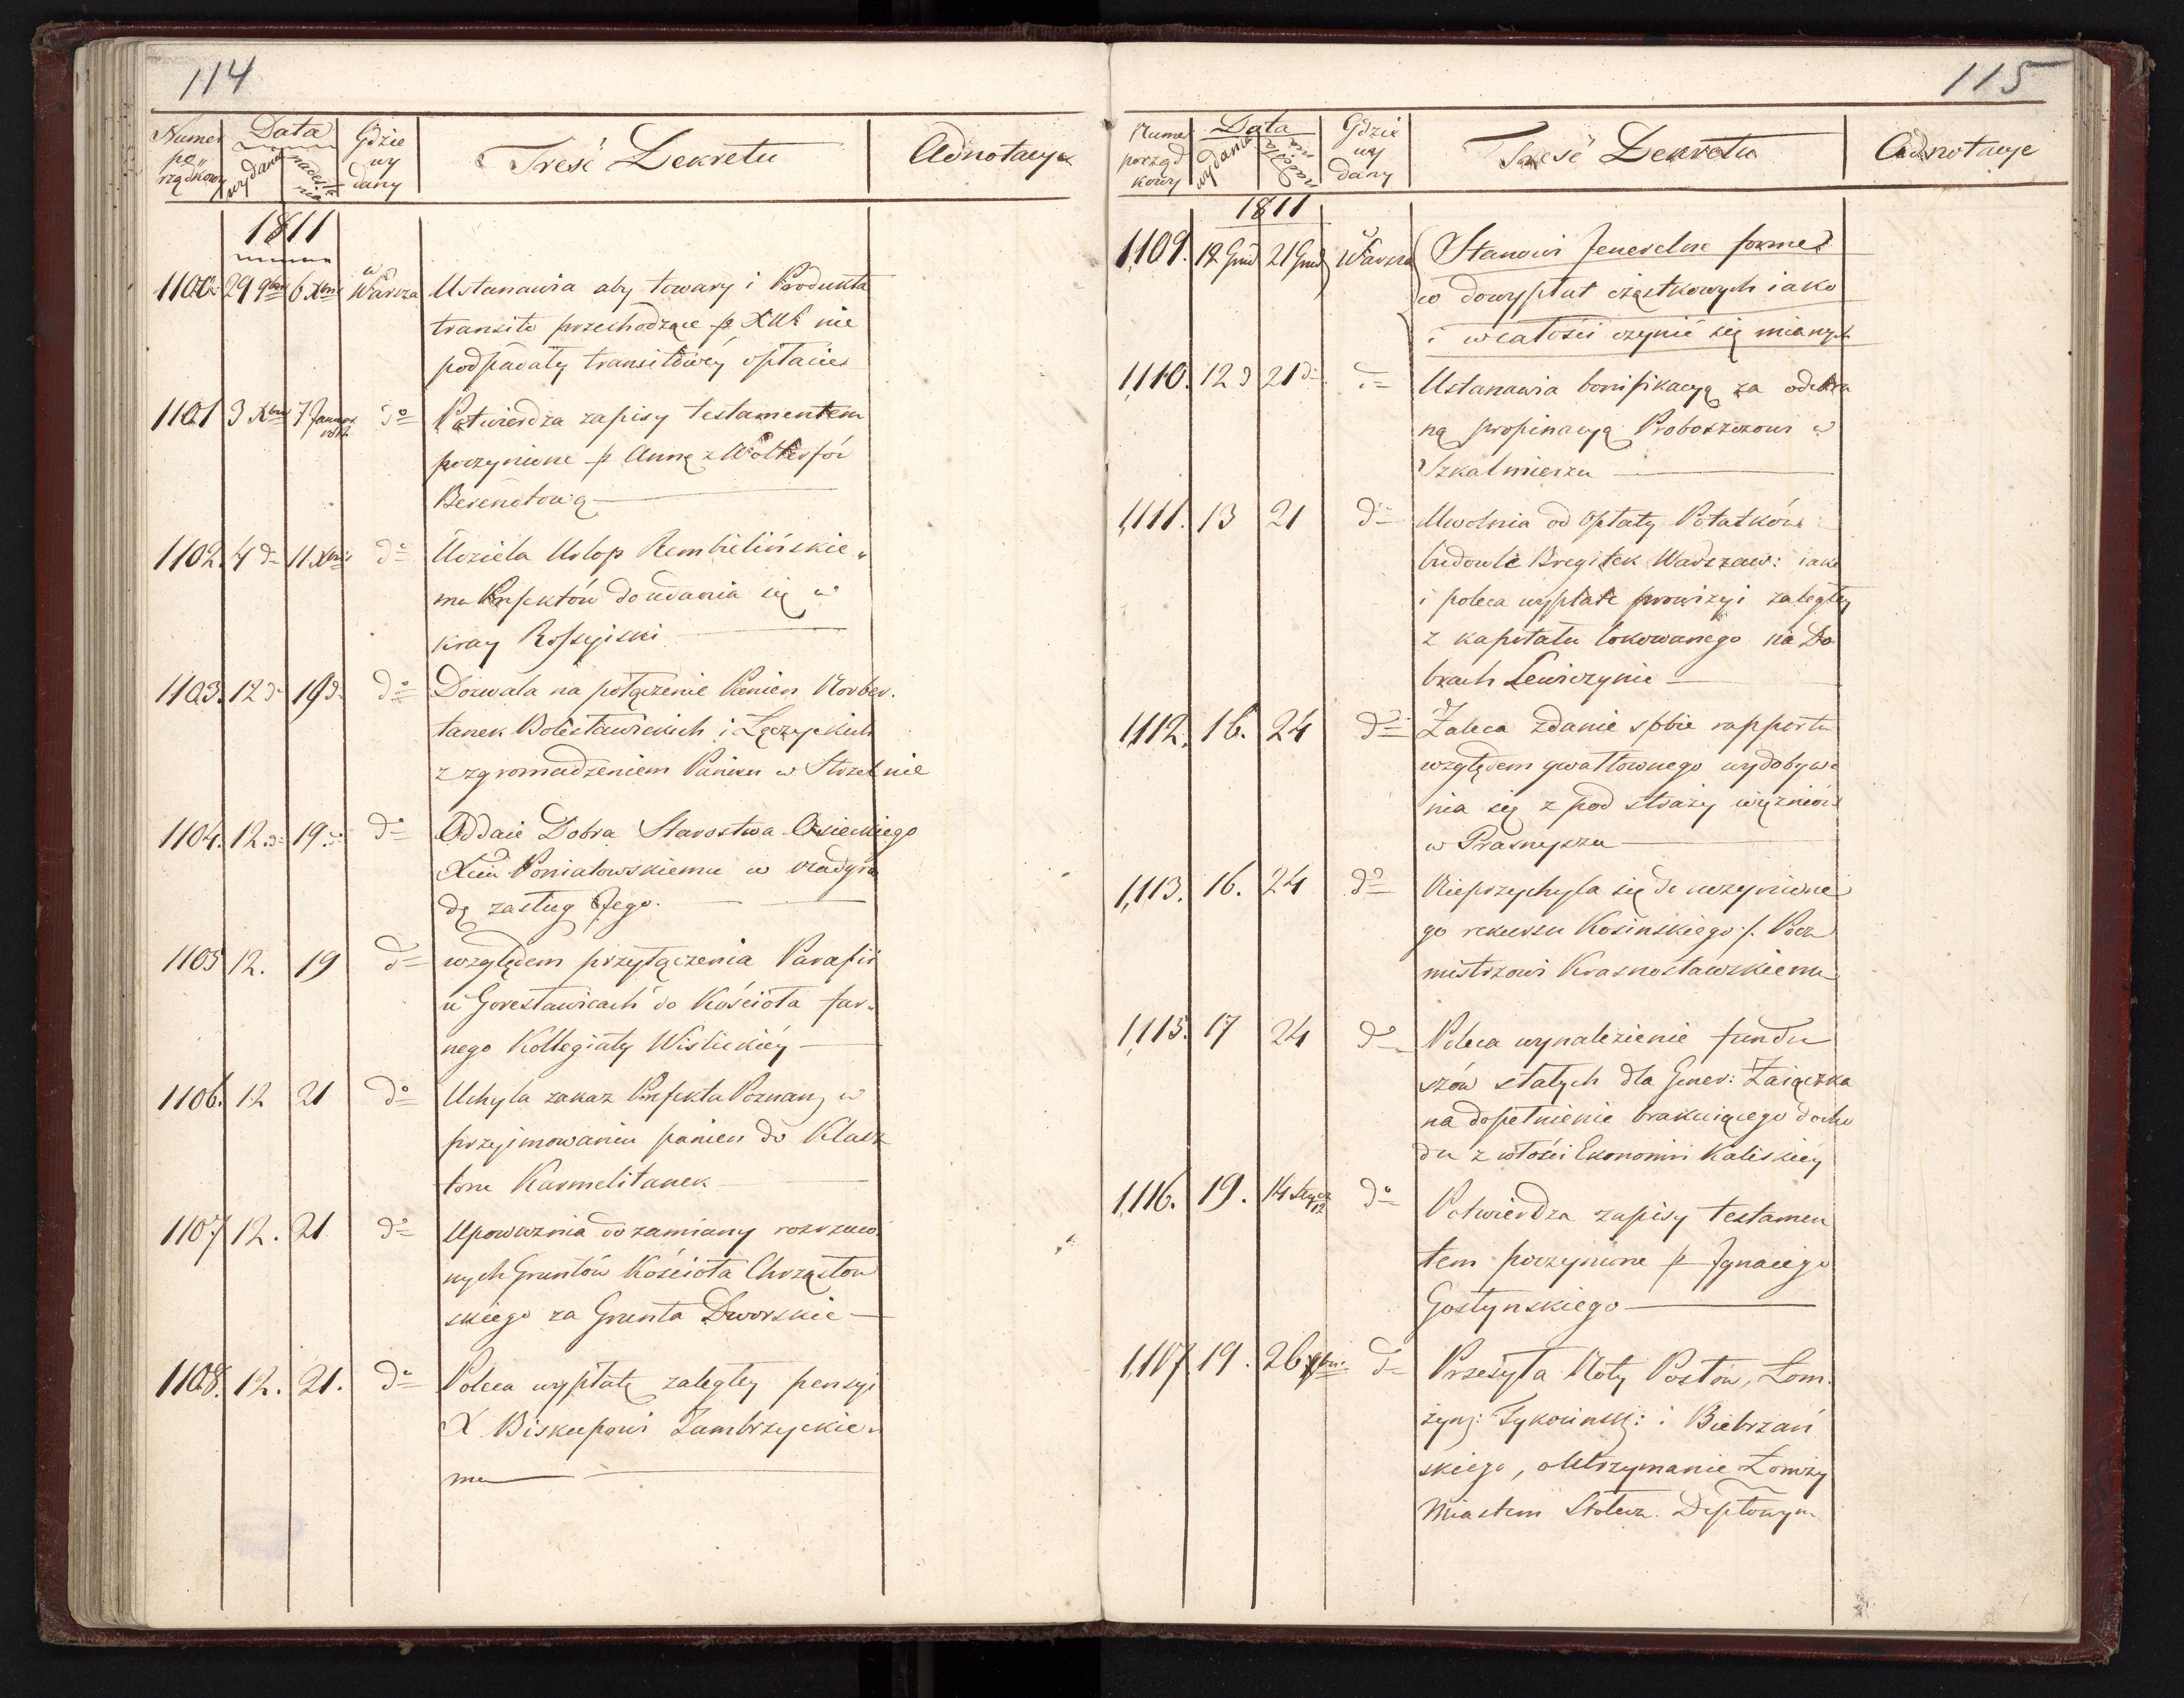 114
Numer porządkowy | Data wydania | nadesłania | Gdzie wydany | Treść Dekretu | Adnotacye
1811
1100. 29 9bris 6 Xbris w Warsza Ustanawia aby towary i Produkta
transito przechodzące p. XW nie
podpadały transitowéy opłacie
1101 3 Xbris 7 Januar 1812 do Potwierdza zapisy testamentem
poczynione p. Annę z Wolterfów
Berendtową
1102. 4 do 11 Xbris do Udziela Urlop Rembielińskie„
mu Prefektów do udania się w
kray Rossyiski
1103. 12 do 19 do do Dozwala na połączenie Panien Norber.
tanek Bolesławickich i Łęczyckich
z zgromadzeniem Panien w Strzelnie
1104. 12. do 19. do do Oddaie Dobra Starostwa Osieckiego
Xciu Poniatowskiemu w nadgro
dę zasług Jego.
1105 12. 19 do względem przyłączenia Parafii
w Goresławicach do Kościoła far„
nego Kollegiaty Wislickiéy
1106. 12 21 do Uchyla zakaz Prefekta Poznan: w
przyimowaniu panien do Klasz
toru Karmelitanek
1107 12. 21 do Upoważnia do zamiany rozrzuco
nych Gruntów Kościoła Chrząstow
skiego za Grunta Dworskie
1108. 12. 21. do Poleca wypłatę zaległey pensyi
X. Biskupowi Zambrzyckie„
mu
115
Numer porządkowy | Data wydania | nadesłania | Gdzie wydany | Treść Dekretu | Adnotacye
1811
1,109. 12 Grud 21 Grud w Warsza Stanowi Jeneralne formę
w dowypłat cząstkowych iako
i wcałości czynić się mianych
1,110. 12 d 21 do do Ustanawia bonifikacyą za odebra
ną propinacyą Proboszczowi w
Szkalmierzu
1,111. 13 21 do Uwolnia od Opłaty Podatków
budowle Bregitek Warszaw: iako
i poleca wypłatę prowizyi zaległey
z kapitału lokowanego na Do
brach Lewiczynie
1,112. 16. 24 do Zaleca zdanie sobie rapportu
względem gwałtownego wydobywa
nia się z pod straży więzniów
w Prasnyszu
1,113. 16. 24 do Nieprzychyla się do uczynione
go rekursu Kosinskiego p. Pocz
mistrzowi Krasnostawskiemu
1,115. 17 24 do Poleca wynalezienie fundu
szów stałych dla Gener: Zaiączka
na dopełnienie brakuiącego docho
du z włości Ekonomii Kaliskiéy
1,116. 19. 14 Stycz 12 do Potwierdza zapisy testamen
tem poczynione p Ignacego
Gostynskiego
1,117. 19. 26 Xbris do Przesyła Noty Posłów, Łom.
żyns: Tykocinsk: i Biebrzań
skiego, o Utrzymanie Łomży
Miastem Stołecz. Deptowym